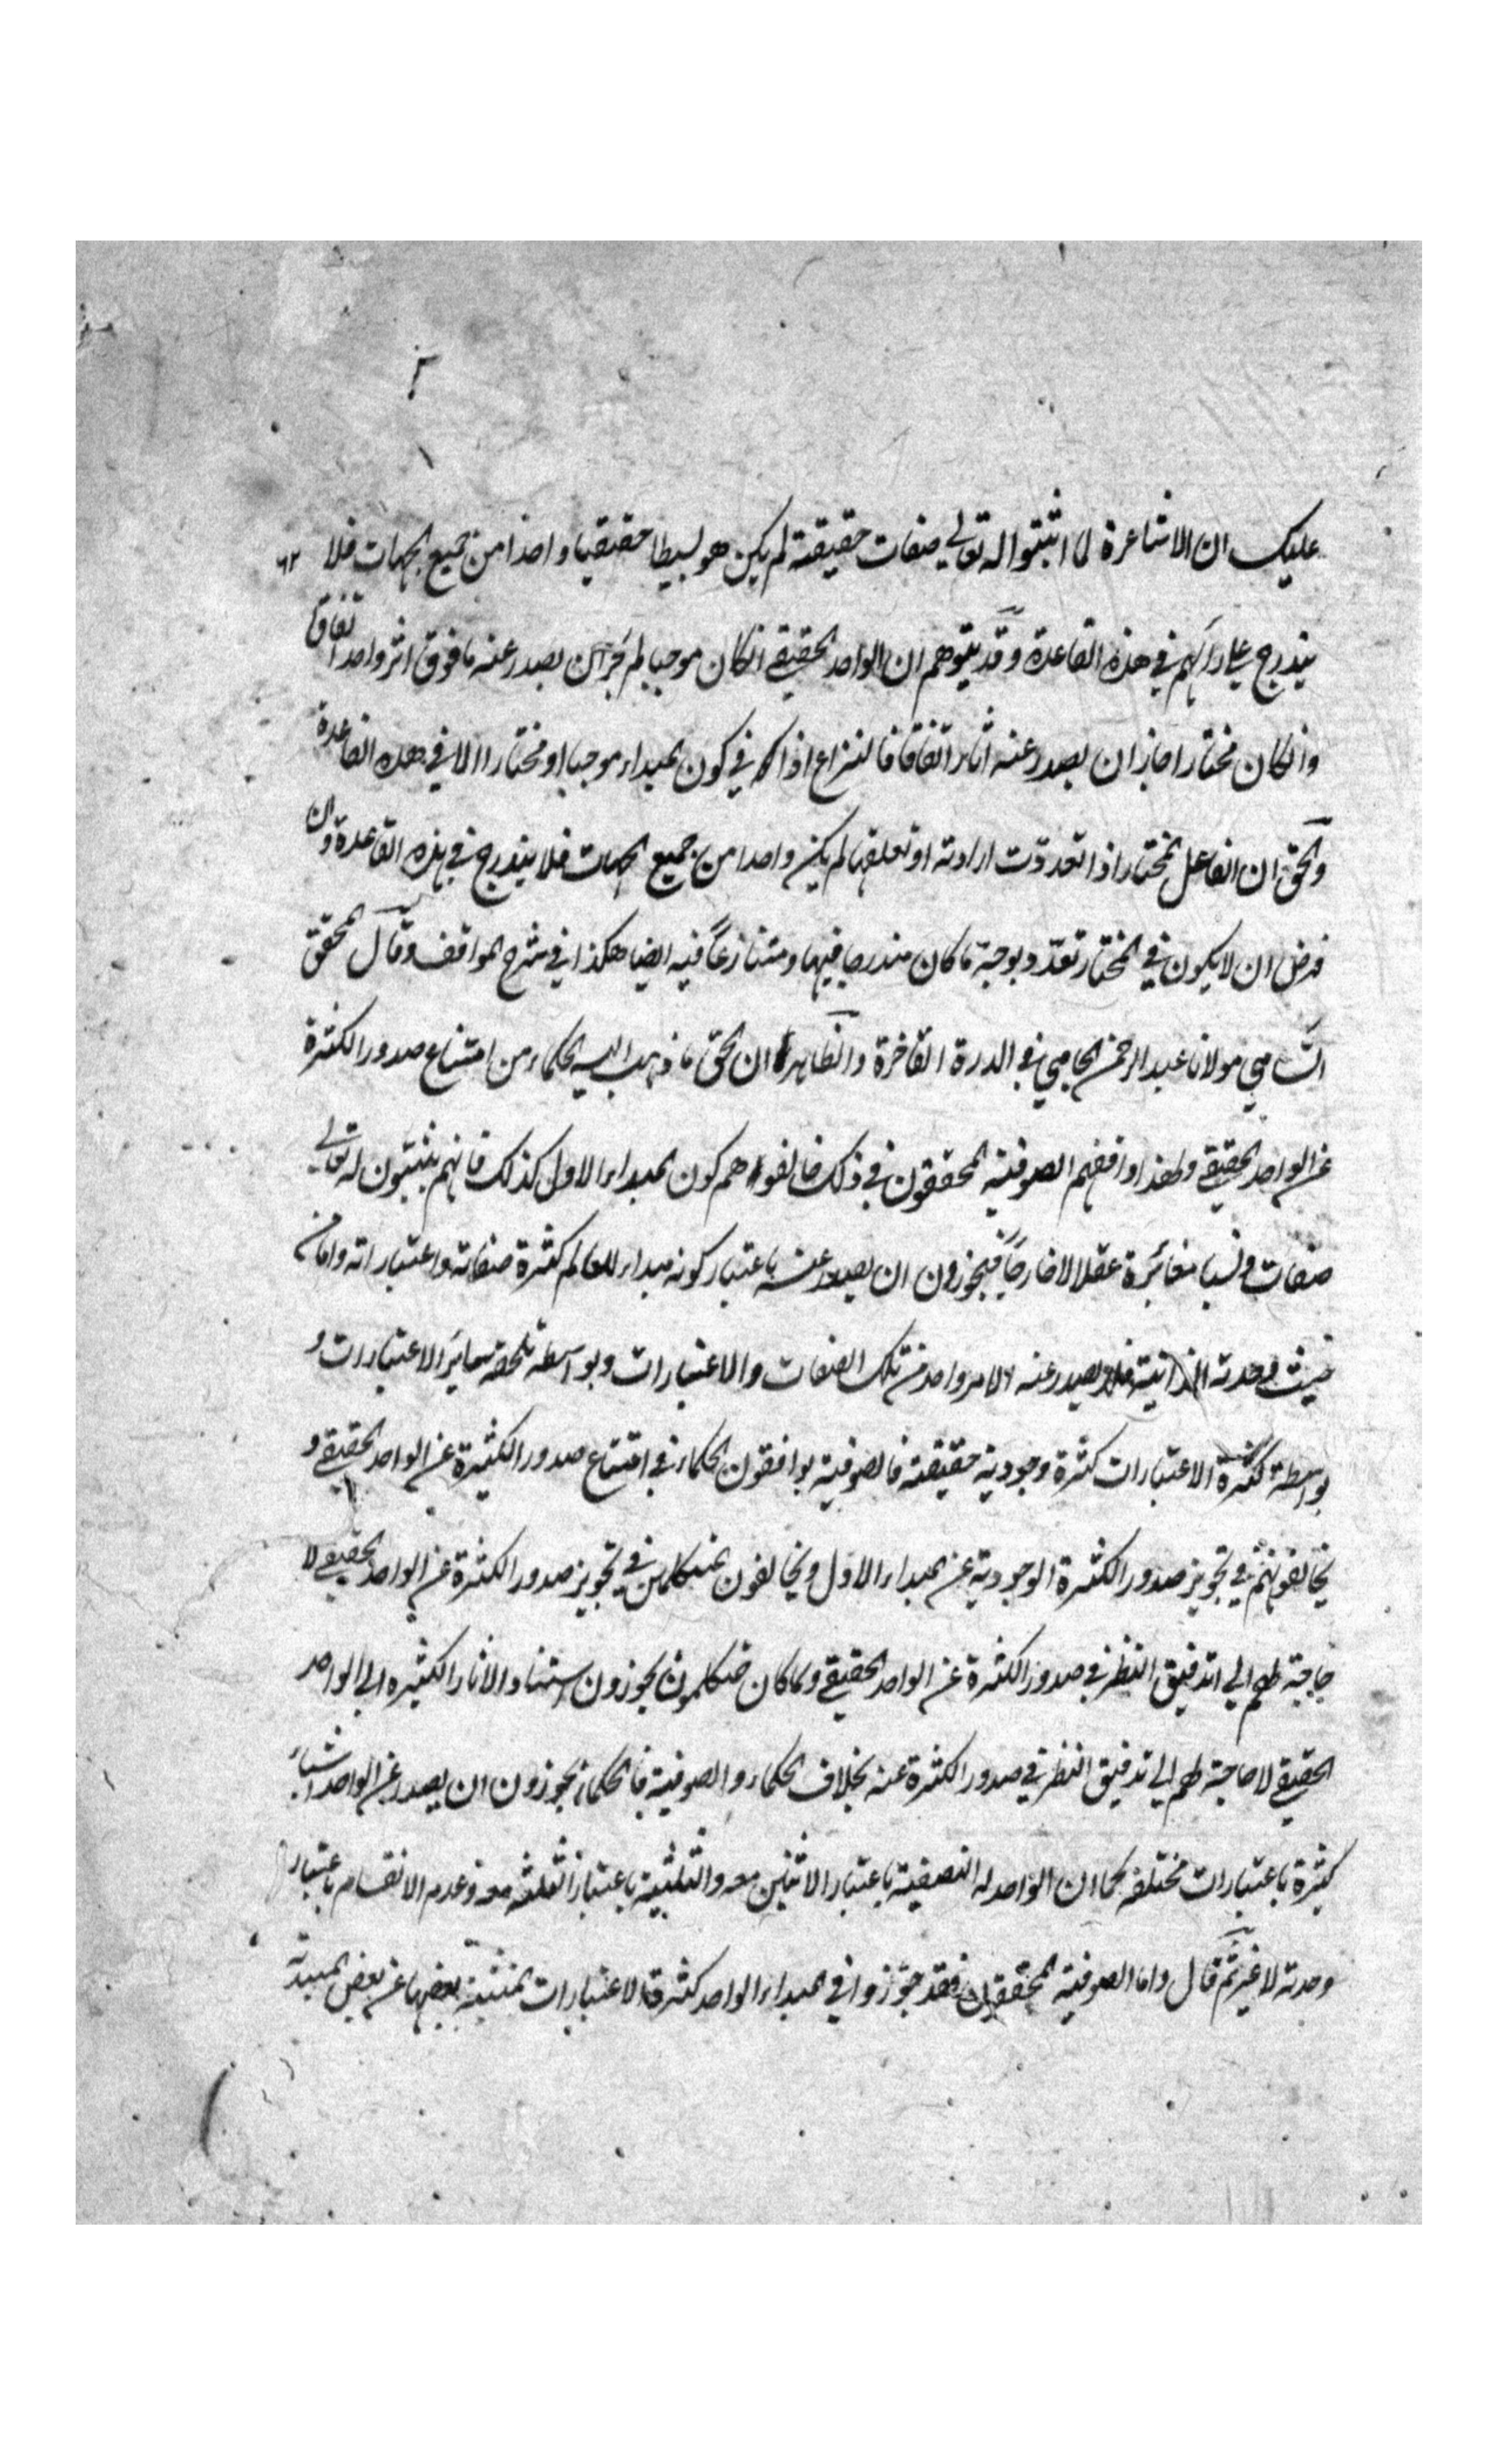 عليك ان الاشاعرة لما اثبتوا له تعالى صفات حقيقية لم يكن هو بسيطا حقيقيا واحدا من جميع الجهات فلا
يندرج على رأيهم في هذه القاعدة وقد يتوهم ان الواحد الحقيقي انكان موجبا لم يجز ان يصدر عنه ما فوق اثر واحد اتفاقا
وانكان مختارا جاز ان يصدر عنه اثار اتفاقا فالنزاع اذا في كون المبداء موجبا او مختارا لا في هذه القاعدة
والحق ان الفاعل المختار اذا تعددت ارادته او تعلقها لم يكن واحدا من جميع الجهات فلا يندرج في هذه القاعدة وان
فرض ان لا يكون في المختار تعدد بوجه ما كان مندرجا فيها ومتنازعا فيه ايضا هكذا في شرح المواقف وقال المحقق
السامي مولانا عبد الرحمن الجامي في الدرة الفاخرة والظاهر ان الحق ما ذهب اليه الحكماء من امتناع صدور الكثرة
عن الواحد الحقيقي ولهذا وافقهم الصوفية المحققون في ذلك خالفوا هم كون المبداء الاول كذلك فانهم يثبتون له تعالى
صفات ونسبا مغائرة عقلا لا خارجا فيجوزون ان يصدر عنه باعتبار كونه مبداء للعالم كثرة صفاته واعتباراته واما من
حيث وحدته الذاتية فلا يصدر عنه الا امر واحد من تلك الصفات والاعتبارات وبواسطته تلحقه سائر الاعتبارات و
بواسطة كثرة الاعتبارات كثرة وجودية حقيقية فالصوفية يوافقون الحكماء في امتناع صدور الكثيرة عن الواحد الحقيقي و
يخالفونهم في تجويز صدور الكثرة الوجودية عن المبداء الاول ويخالفون المتكلمين في تجويز صدور الكثرة عن الواحد الحقيقي لا
حاجة لهم الى تدقيق النظر في صدور الكثرة عن الواحد الحقيقي ولما كان متكلمون يجوزون استناد الاثار الكثيره الى الواحد
الحقيقي لا حاجة لهم الى تدقيق النظر في صدور الكثرة عنه بخلاف الحكماء والصوفية فالحكماء يجوزون ان يصدر عن الواحد اشياء
كثيرة باعتبارات مختلفة كما ان الواحد له النصفية باعتبار الاثنين معه والثلثية باعتبار الثلثه معه وعدم الانقسام باعتبار
وحدته لا غير ثم قال واما الصوفية المحققون فقد جوزوا في المبداء الواحد كثرة الاعتبارات المنتشية بعضها عن بعض المبتدئة